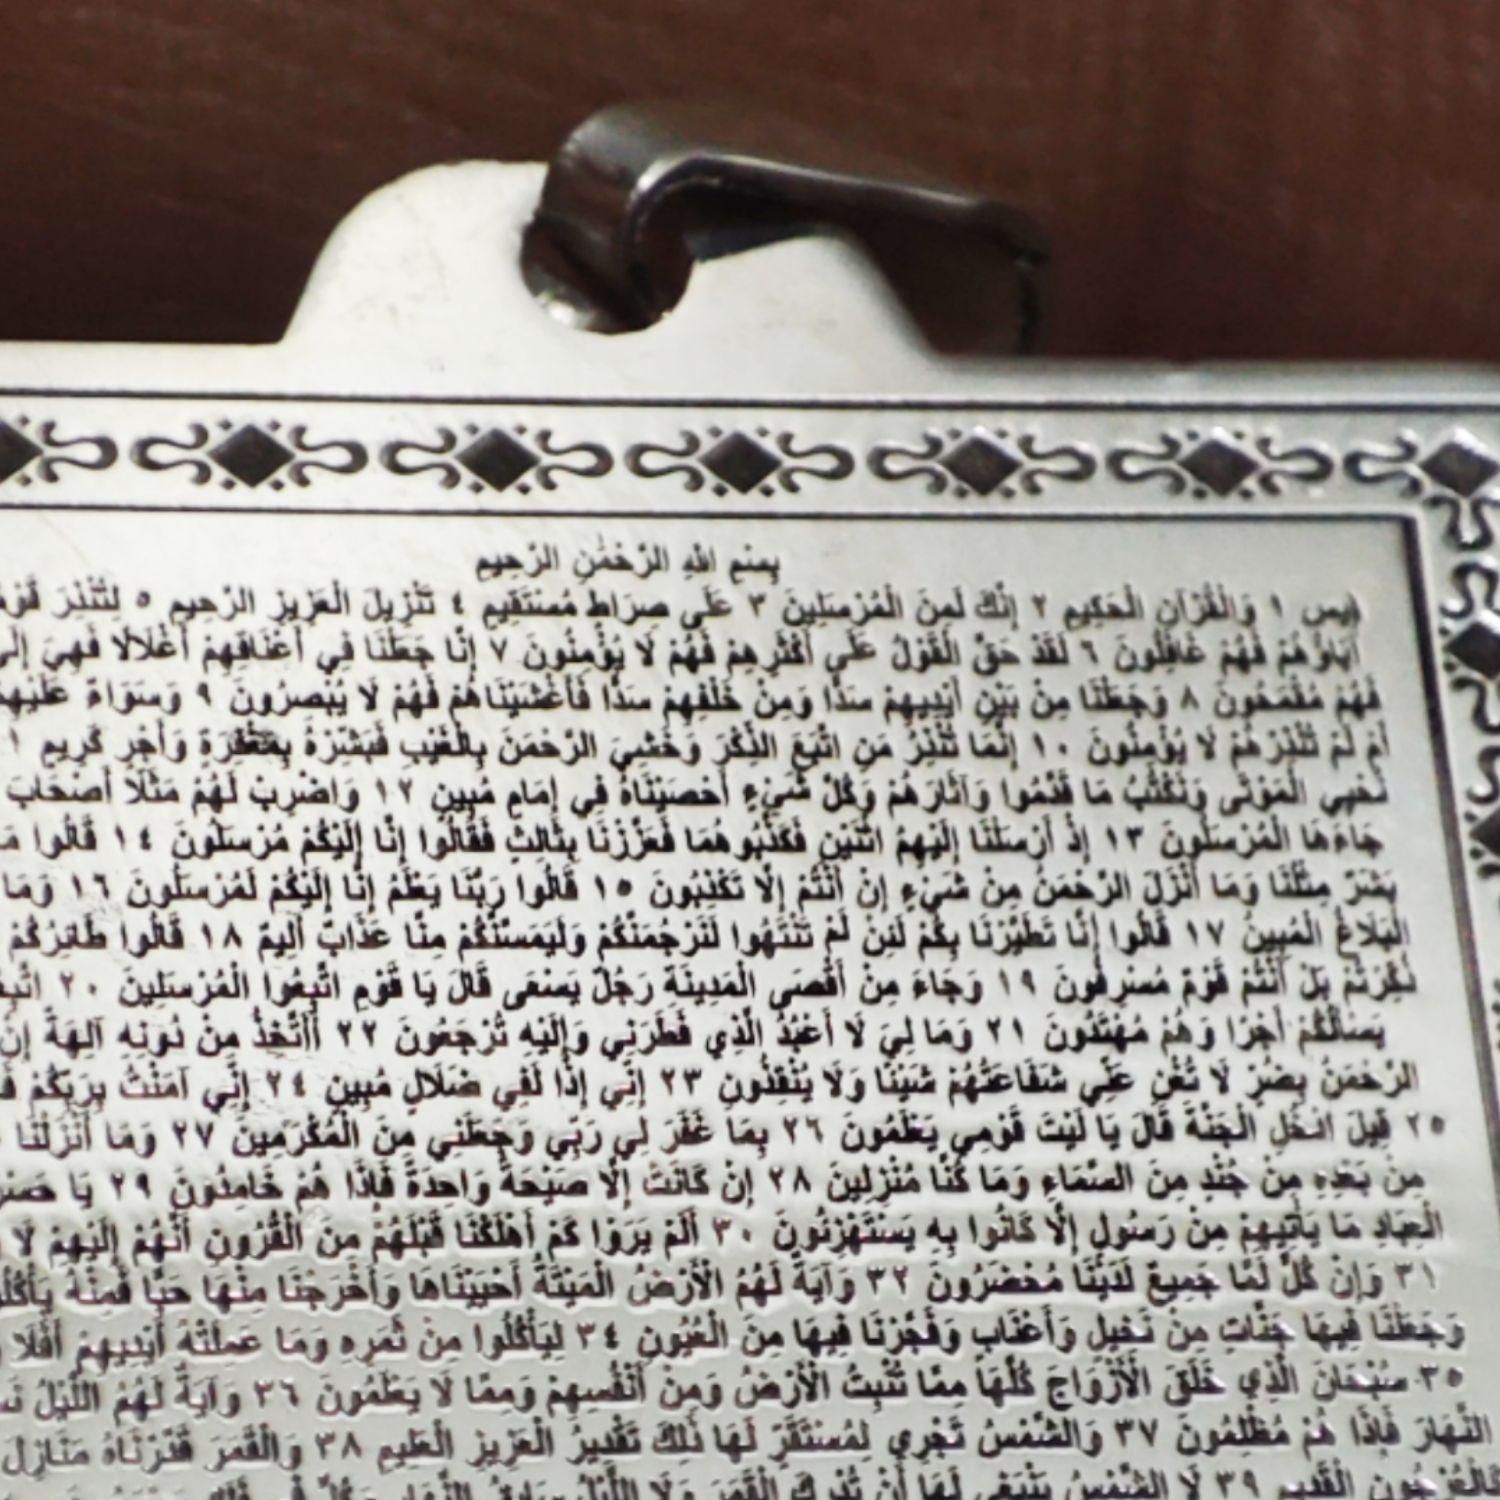 بِسْمِ اللهِ الرَّحْمٰنِ الرَّحِيمِ
يس ١ وَالْقُرْآنِ الْحَكِيمِ ٢ إِنَّكَ لَمِنَ الْمُرْسَلِينَ ٣ عَلَى صِرَاطٍ مُسْتَقِيمٍ ٤ تَنْزِيلَ الْعَزِيزِ الرَّحِيمِ ٥ لِتُنْذِرَ
آبَاؤُهُمْ فَهُمْ غَافِلُونَ ٦ لَقَدْ حَقَّ الْقَوْلُ عَلَى أَكْثَرِهِمْ فَهُمْ لَا يُؤْمِنُونَ ٧ إِنَّا جَعَلْنَا فِي أَعْنَاقِهِمْ أَغْلَالًا فَهِيَ إِلَى
فَهُمْ مُقْمَحُونَ ٨ وَجَعَلْنَا مِنْ بَيْنِ أَيْدِيهِمْ سَدًّا وَمِنْ خَلْفِهِمْ سَدًّا فَأَغْشَيْنَاهُمْ فَهُمْ لَا يُبْصِرُونَ ٩ وَسَوَاءٌ عَلَيْهِمْ
أَمْ لَمْ تُنْذِرْهُمْ لَا يُؤْمِنُونَ ١٠ إِنَّمَا تُنْذِرُ مَنِ اتَّبَعَ الذِّكْرَ وَخَشِيَ الرَّحْمَنَ بِالْغَيْبِ فَبَشِّرْهُ بِمَغْفِرَةٍ وَأَجْرٍ كَرِيمٍ
نُحْيِي الْمَوْتَى وَنَكْتُبُ مَا قَدَّمُوا وَآثَارَهُمْ وَكُلَّ شَيْءٍ أَحْصَيْنَاهُ فِي إِمَامٍ مُبِينٍ ١٢ وَاضْرِبْ لَهُمْ مَثَلًا أَصْحَابَ
جَاءَهَا الْمُرْسَلُونَ ١٣ إِذْ أَرْسَلْنَا إِلَيْهِمُ اثْنَيْنِ فَكَذَّبُوهُمَا فَعَزَّزْنَا بِثَالِثٍ فَقَالُوا إِنَّا إِلَيْكُمْ مُرْسَلُونَ ١٤ قَالُوا
بَشَرٌ مِثْلُنَا وَمَا أَنْزَلَ الرَّحْمَنُ مِنْ شَيْءٍ إِنْ أَنْتُمْ إِلَّا تَكْذِبُونَ ١٥ قَالُوا رَبُّنَا يَعْلَمُ إِنَّا إِلَيْكُمْ لَمُرْسَلُونَ ١٦ وَمَا
الْبَلَاغُ الْمُبِينُ ١٧ قَالُوا إِنَّا تَطَيَّرْنَا بِكُمْ لَئِنْ لَمْ تَنْتَهُوا لَنَرْجُمَنَّكُمْ وَلَيَمَسَّنَّكُمْ مِنَّا عَذَابٌ أَلِيمٌ ١٨ قَالُوا طَائِرُكُمْ
ذُكِّرْتُمْ بَلْ أَنْتُمْ قَوْمٌ مُسْرِفُونَ ١٩ وَجَاءَ مِنْ أَقْصَى الْمَدِينَةِ رَجُلٌ يَسْعَى قَالَ يَا قَوْمِ اتَّبِعُوا الْمُرْسَلِينَ ٢٠
يَسْأَلُكُمْ أَجْرًا وَهُمْ مُهْتَدُونَ ٢١ وَمَا لِيَ لَا أَعْبُدُ الَّذِي فَطَرَنِي وَإِلَيْهِ تُرْجَعُونَ ٢٢ أَأَتَّخِذُ مِنْ دُونِهِ آلِهَةً إِنْ
الرَّحْمَنُ بِضُرٍّ لَا تُغْنِ عَنِّي شَفَاعَتُهُمْ شَيْئًا وَلَا يُنْقِذُونِ ٢٣ إِنِّي إِذًا لَفِي ضَلَالٍ مُبِينٍ ٢٤ إِنِّي آمَنْتُ بِرَبِّكُمْ
٢٥ قِيلَ ادْخُلِ الْجَنَّةَ قَالَ يَا لَيْتَ قَوْمِي يَعْلَمُونَ ٢٦ بِمَا غَفَرَ لِي رَبِّي وَجَعَلَنِي مِنَ الْمُكْرَمِينَ ٢٧ وَمَا أَنْزَلْنَا
مِنْ بَعْدِهِ مِنْ جُنْدٍ مِنَ السَّمَاءِ وَمَا كُنَّا مُنْزِلِينَ ٢٨ إِنْ كَانَتْ إِلَّا صَيْحَةً وَاحِدَةً فَإِذَا هُمْ خَامِدُونَ ٢٩ يَا
الْعِبَادِ مَا يَأْتِيهِمْ مِنْ رَسُولٍ إِلَّا كَانُوا بِهِ يَسْتَهْزِئُونَ ٣٠ أَلَمْ يَرَوْا كَمْ أَهْلَكْنَا قَبْلَهُمْ مِنَ الْقُرُونِ أَنَّهُمْ إِلَيْهِمْ لَا
٣١ وَإِنْ كُلٌّ لَمَّا جَمِيعٌ لَدَيْنَا مُحْضَرُونَ ٣٢ وَآيَةٌ لَهُمُ الْأَرْضُ الْمَيْتَةُ أَحْيَيْنَاهَا وَأَخْرَجْنَا مِنْهَا حَبًّا فَمِنْهُ
وَجَعَلْنَا فِيهَا جَنَّاتٍ مِنْ نَخِيلٍ وَأَعْنَابٍ وَفَجَّرْنَا فِيهَا مِنَ الْعُيُونِ ٣٤ لِيَأْكُلُوا مِنْ ثَمَرِهِ وَمَا عَمِلَتْهُ أَيْدِيهِمْ أَفَلَا
٣٥ سُبْحَانَ الَّذِي خَلَقَ الْأَزْوَاجَ كُلَّهَا مِمَّا تُنْبِتُ الْأَرْضُ وَمِنْ أَنْفُسِهِمْ وَمِمَّا لَا يَعْلَمُونَ ٣٦ وَآيَةٌ لَهُمُ اللَّيْلُ
النَّهَارَ فَإِذَا هُمْ مُظْلِمُونَ ٣٧ وَالشَّمْسُ تَجْرِي لِمُسْتَقَرٍّ لَهَا ذَلِكَ تَقْدِيرُ الْعَزِيزِ الْعَلِيمِ ٣٨ وَالْقَمَرَ قَدَّرْنَاهُ مَنَازِلَ
كَالْعُرْجُونِ الْقَدِيمِ ٣٩ لَا الشَّمْسُ يَنْبَغِي لَهَا أَنْ تُدْرِكَ الْقَمَرَ وَلَا اللَّيْلُ